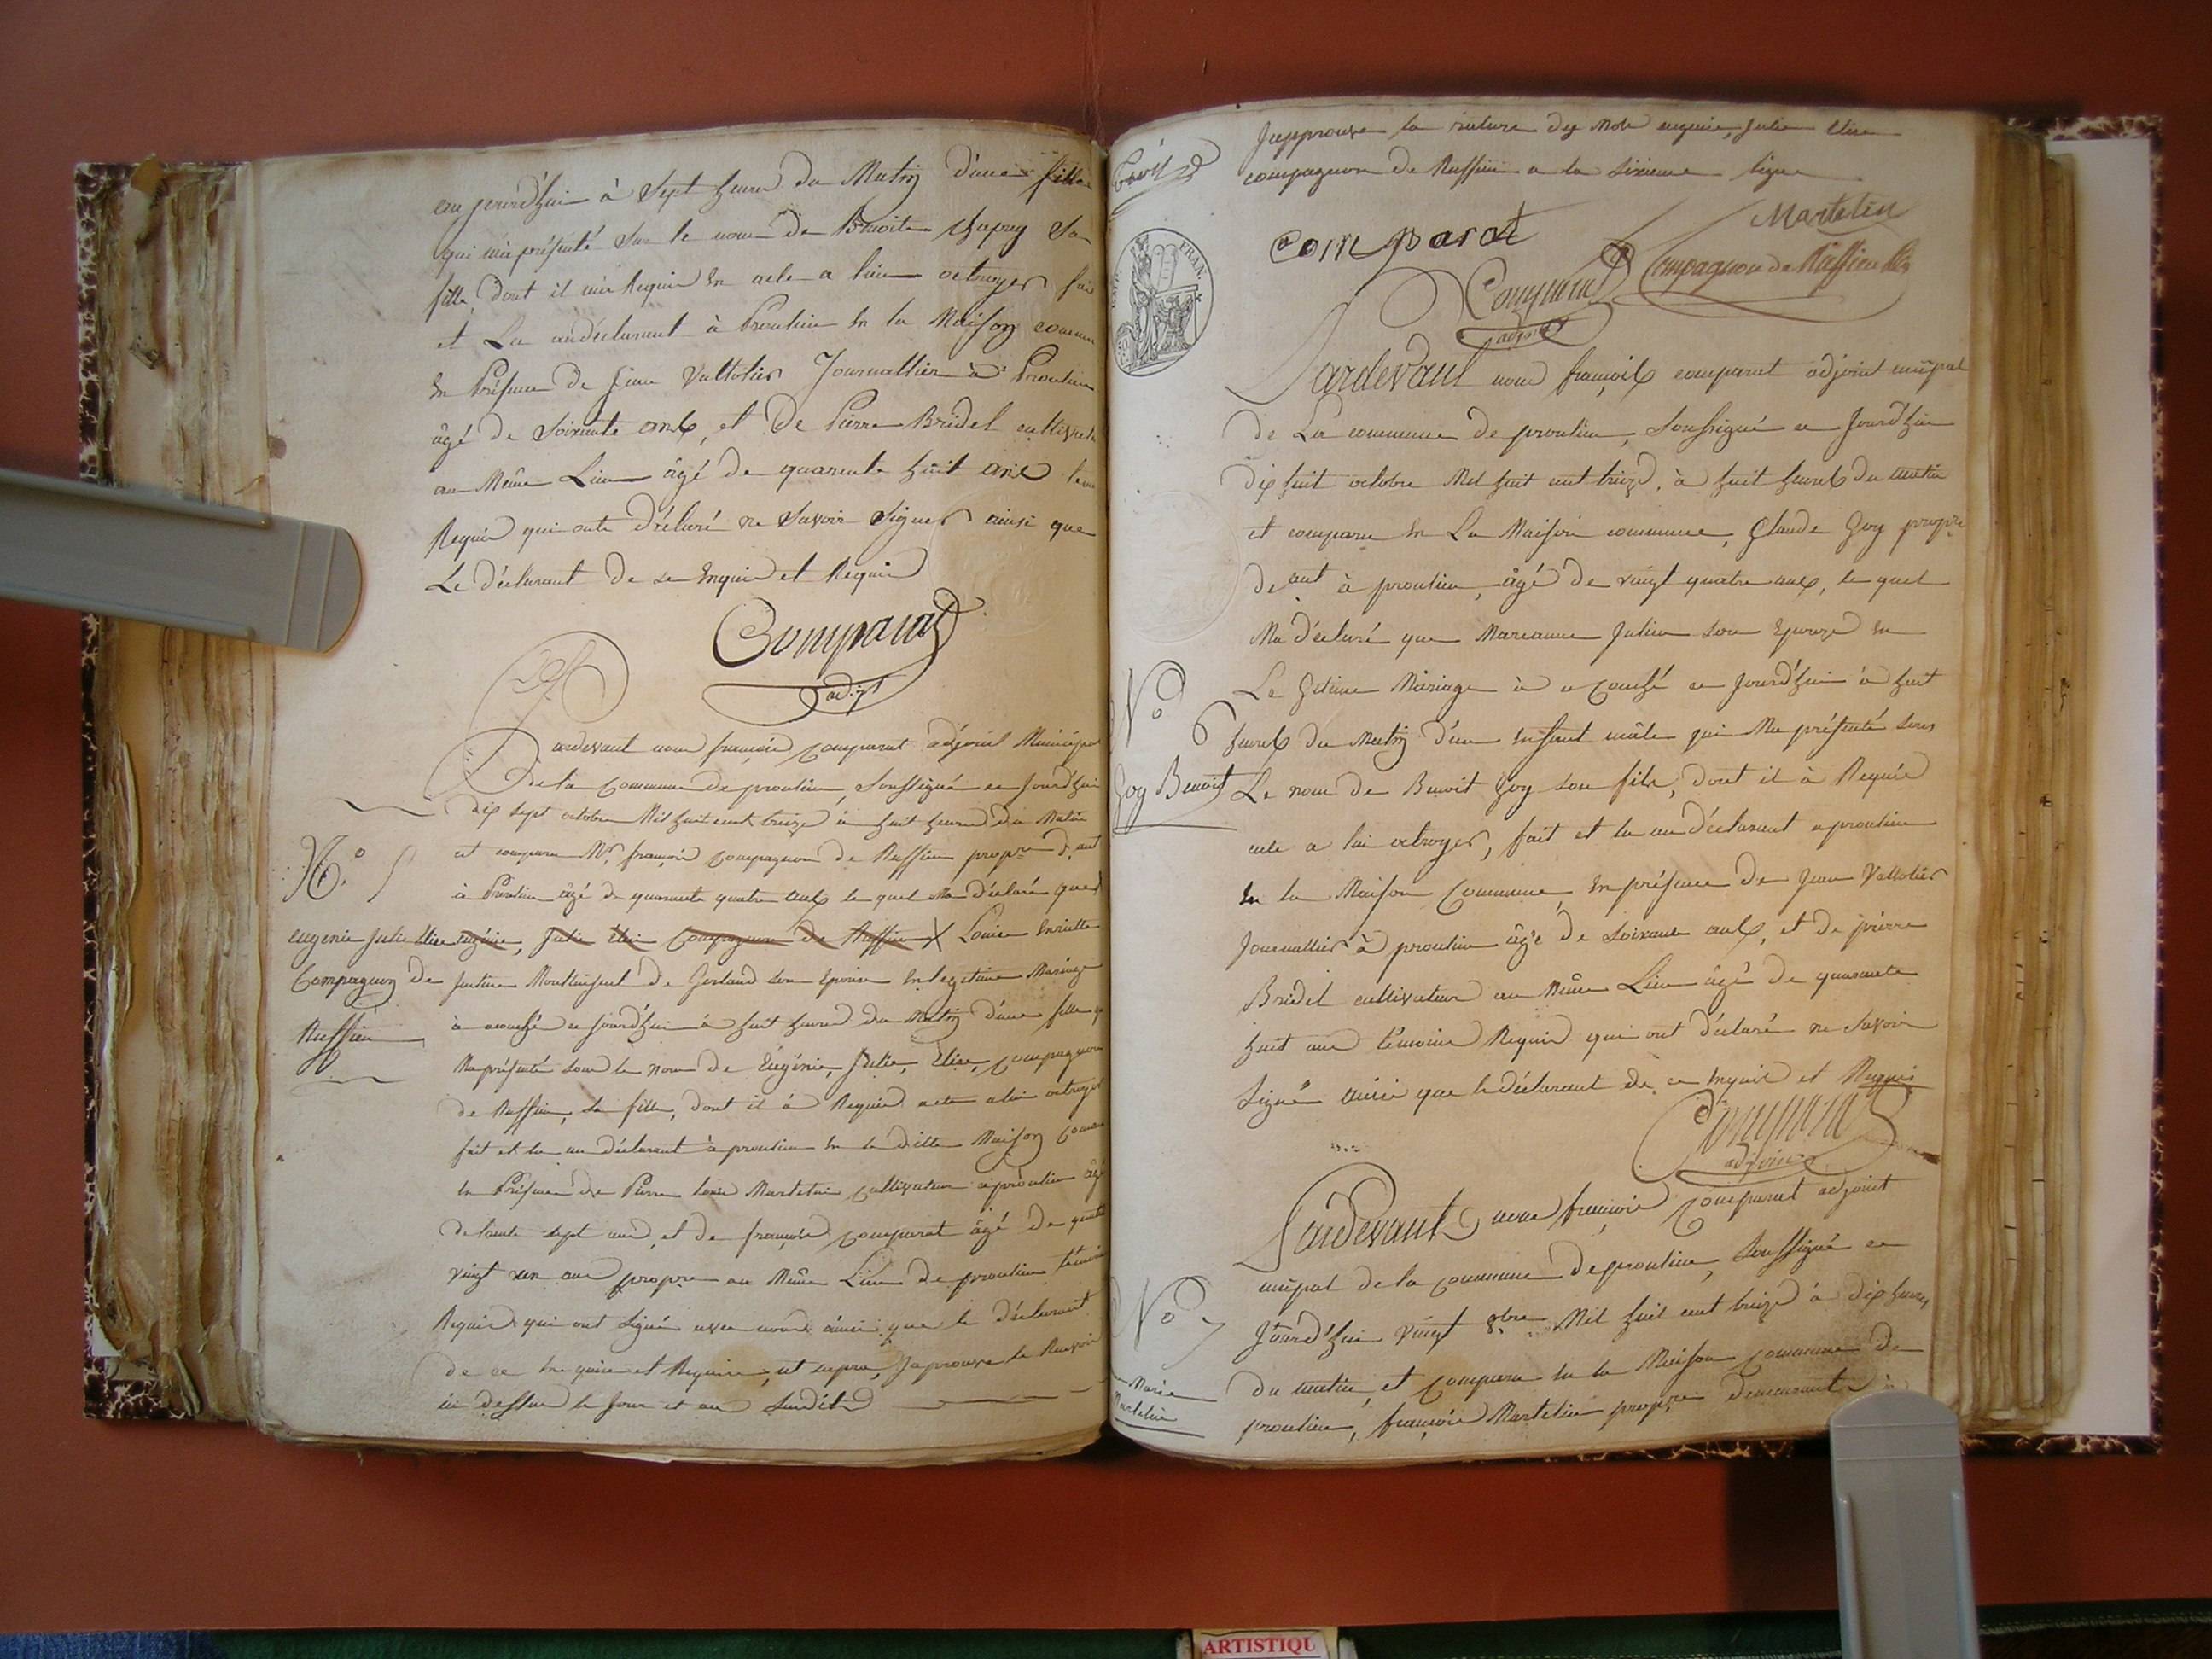 aujourd'hui à Sept heures du Matin d'une fille
qui m'a présenté sous le nom de Benoite Chapuy Sa
fille dont il m'a Requis En acte a lui octroyer fait
et Lu au déclarant à Proulieu En la Maison commune
En Présence De Jean Vallotier Journallier à Proulieu
âgé de Soixante ans, et De Pierre Bridel cultivateur
au Même Lieu âgé de quarante huit ans
Requis qui onts Déclaré ne Savoir Signer ainsi que
Le déclarant de ce Enquis et Requis
Comparat
adjt
Pardevant nous françois Comparat adjoint Municipal
De la Commune de proulieu, Soussigné ce Jourd'hui
dix sept octobre Mil huit cent treize à huit heures du Matin
est comparu Mr. françois Compagnon de Ruffieu propre dt
à Proulieu âgé de quarante quatre ans le quel Ma déclaré que
N.° 5
eugenie Julie Elise
Compagnon De
Ruffieu
eugénie, Julie Elise Compagnon de Ruffieu X Louise henriette
Justine de Gerland son Epouse En legitime Mariage
à accouché ce Jourd'hui à huit heures du Matin d'une fille
Ma présenté sous le nom de Eugénie, Julie, Elise, Compagnon
de Ruffieu, sa fille, dont il à Requis acte a lui octroyé
fait et lu au déclarant à proulieu En la ditte Maison Commune
En Présence de Pierre Louis Martelin Cultivateur à proulieu âgé
de trente sept ans, et de françois Comparat âgé de quatre
vingt un ans propre au Même Lieu de proulieu témoins
Requis qui ont Signé avec nous ainsi que le déclarant
de ce Enquis et Requis, ut supra, Japrouve le Renvoi
ci dessus le Jour et an Susdits
Japprouve la rature des Mots eugenie, Julie Elise
compagnon de Ruffieu a la Sixieme ligne
EMP. FRAN.
Martelin
comparat
Compagnon de Ruffieu
Comparat
adjoint
Pardevant nous françois comparat adjoint mñpal
de La commune de proulieu, Soussigné ce Jourd'hui
dix huit octobre Mil huit cent treize, à huit heures du matin
est comparu En La Maison commune, Claude Goy propre
de ant à proulieu, âgé De vingt quatre ans, le quel
Ma déclaré que Marianne Julien son Epouze En
Le Gitime Mariage à a couché ce Jourd'hui à huit
N° 6
heures du Matin d'un Enfant mâle qui Ma présenté sous
Goy Benoit
Le nom de Benoit Goy son fils, dont il à Requis
acte a lui octroyer, fait et lu au déclarant a proulieu
En la Maison Commune, En présence de Jean Vallotier
Journallier à proulieu âgé de Soixante ans, et de pierre
Bridel cultivateur au Même Lieu âgé de quarante
huit ans témoins Requis qui ont déclaré ne Savoir
Signé ainsi que le déclarant de ce Enquis et Requis
Comparat
adjoint
Pardevant nous françois Comparat adjoint
mñpal de la Commune de proulieu, Soussigné ce
N° 7
Jourd'hui vingt 8bre Mil huit cent treize à dix heures
Marie
Martelin
du matin, est Comparu En la Maison Commune de
proulieu, françois Martelin propre demeurant à
ARTISTIQU